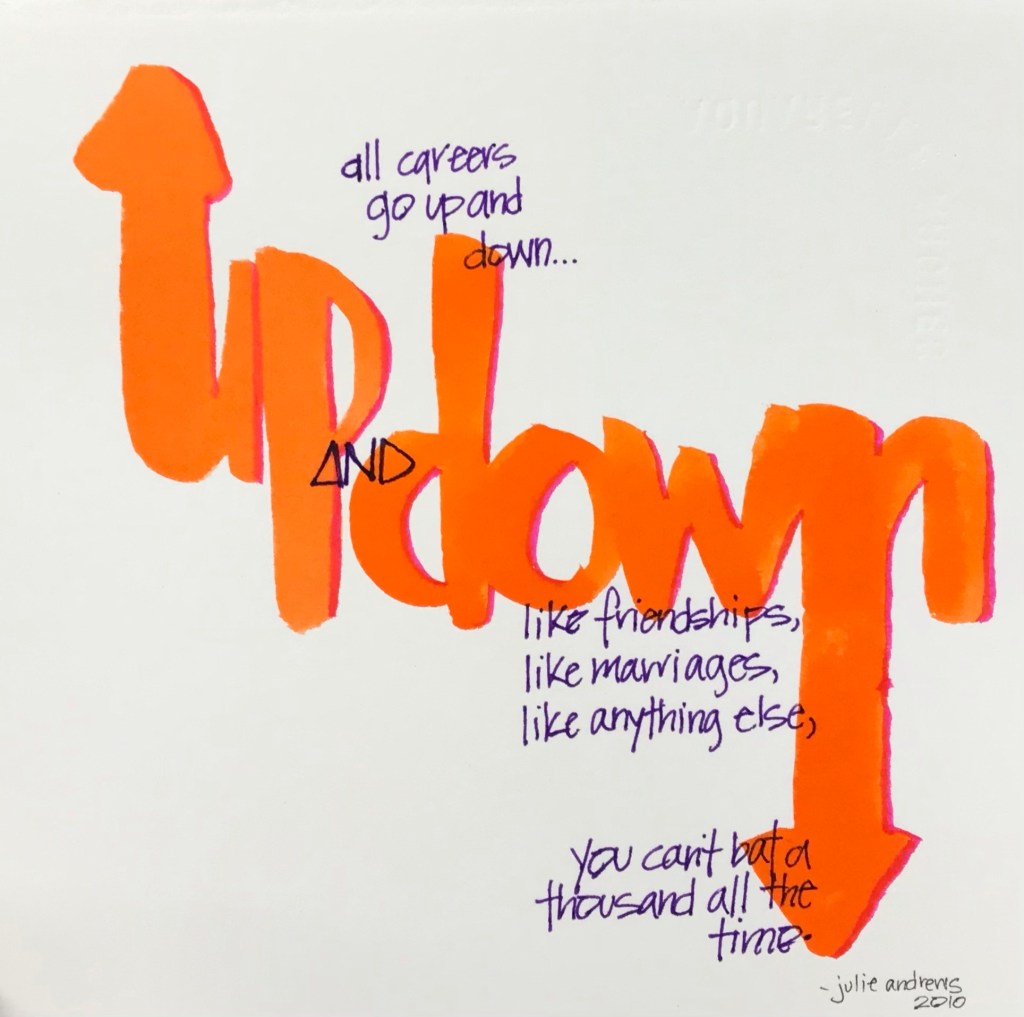 all careers
go up and
down...
up
AND
down
like friendships,
like marriages,
like anything else,
you can't bat a
thousand all the
time.
-julie andrews
2010